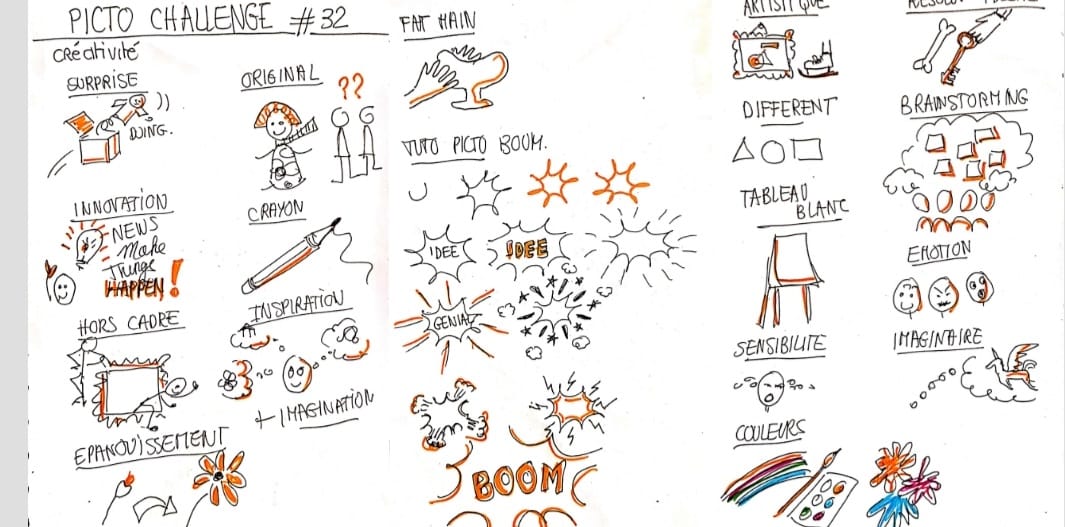 PICTO CHALLENGE #32
Créativité
SURPRISE
DOING.
ORIGINAL
??
INNOVATION
NEWS
Make
Things
HAPPEN!
CRAYON
HORS CADRE
INSPIRATION
+ IMAGINATION
EPANOUISSEMENT
FAT MAIN
TUTO PICTO BOOM.
IDEE
IDEE
GENIAL
BOOM
ARTISTIQUE
DIFFERENT
TABLEAU
BLANC
SENSIBILITE
COULEURS
BRAINSTORMING
EMOTION
IMAGINAIRE